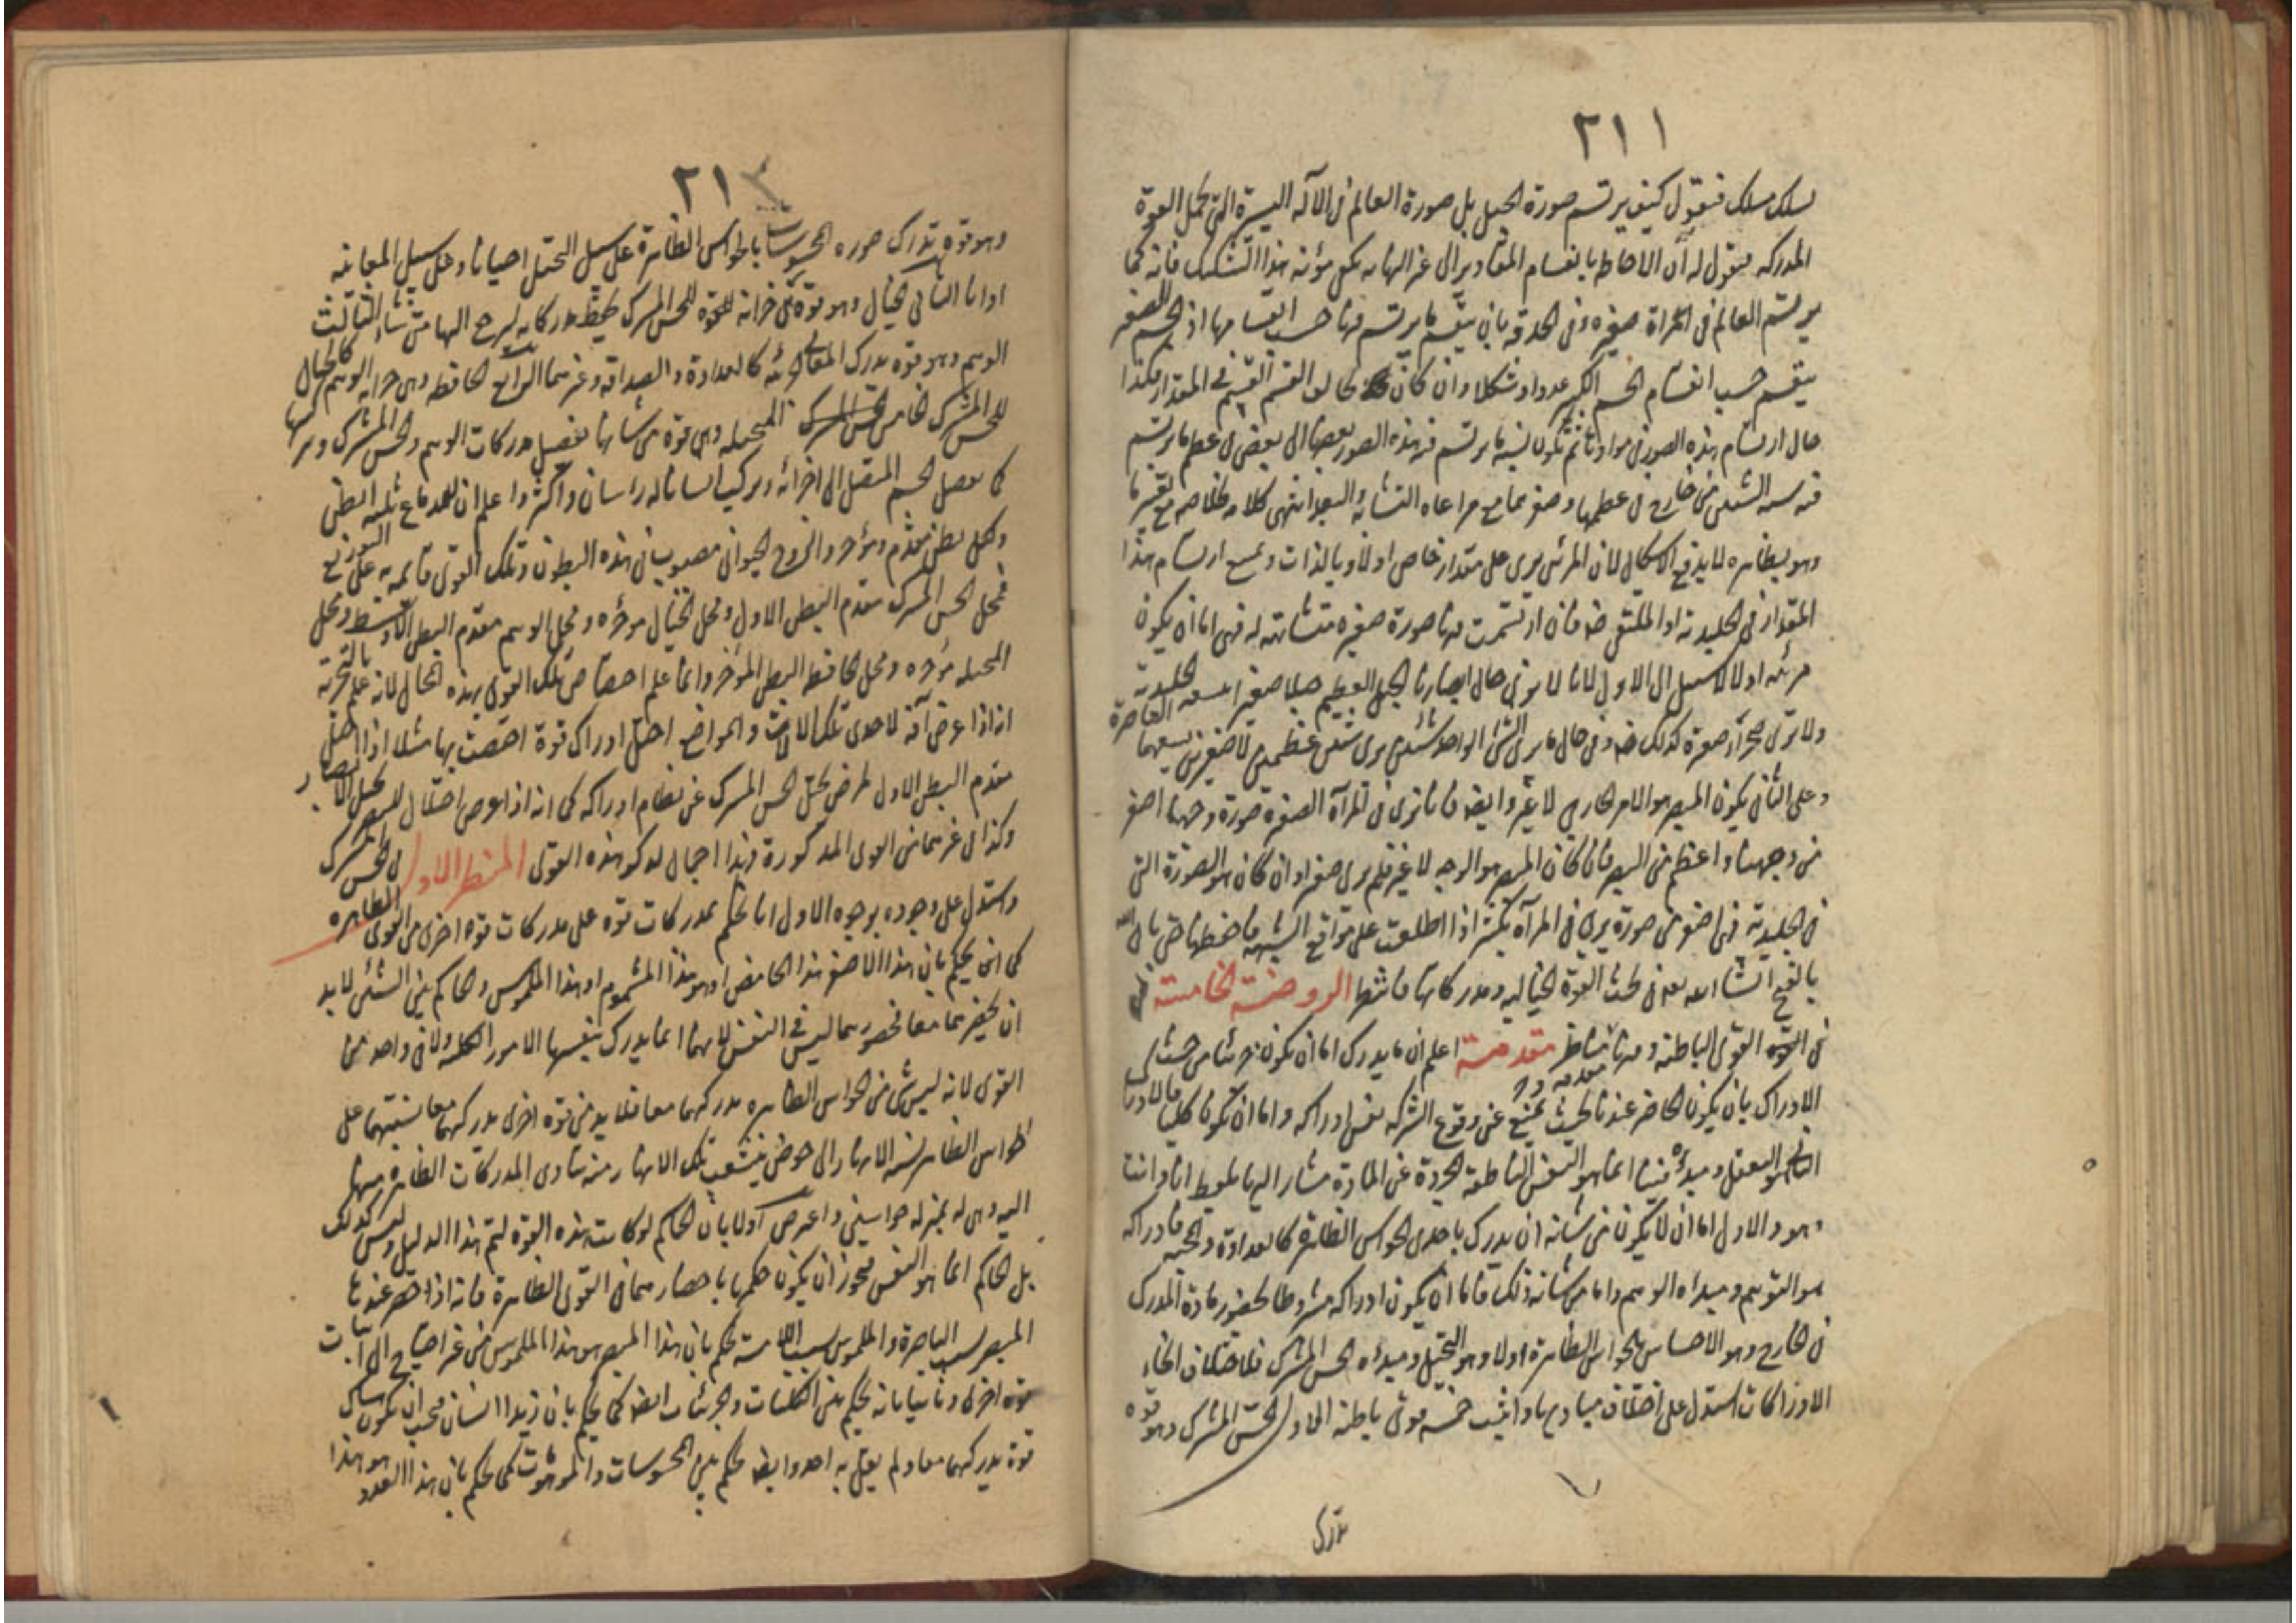 ٢١١
فنقول كيف يرتسم صورة الجبل بل صورة العالم فى الآلة اليسيرة التى تحمل القوة
المدركه فنقول له أن الاحاطه بانقسام المقادير الى غير النهايه يكفى مؤنه هذا التشكيك فانه كما
يرتسم العالم فى المرآة صغيره وفى الحدقه بان ينقسم ما يرتسم فيها حسب انقسامها اذ الجسم الصغير
ينقسم حسب انقسام الجسم الكبير عددا وشكلا وان كان يخالف القسم القسم فى المقدار فكذا
حال ارتسام هذه الصور فى موادها ثم تكون نسبة ما يرتسم فيه هذه الصور بعضها الى بعض فى عظم ما يرتسم
الشيئين من خارج فى عظمها وصغرهما مع مراعاه التشابه والبعد انتهى كلامه
وهو بظاهره لا يدفع الاشكال لان المرئى يرى على مقدار خاص اولا وبالذات ويمتنع ارتسام هذا
المقدار فى الجليدية او الملتقى فان ارتسمت فيها صورة صغيره متشابهه له فهى اما ان يكون
مرئيه اولا لا سبيل الى الاول لانا لا نرى حال ابصارنا الجبل العظيم جبلا صغيرا الجليدية
ولا نرى كذلك وفى حال ما يرى الشئ الواحد شيئين يرى شيئين عظيمين لا صغيرين
وعلى الثانى يكون المبصر هو الامر الخارجى لا غير وايضا فانا نرى فى المرآة الصغيرة صورة وجهنا اصغر
من وجهنا واعظم من البصر فان كان المبصر هو الوجه لا غير فلم يرى صغيرا وان كان هو الصورة التى
فى الجليدية فهى اصغر من صورة يرى فى المرآة بكثير اذا اطلعت على مواقع الشبهه فاحفظها حتى
بالفتح انشاء الله بعد فى بحث القوة الخياليه ومدركاتها فانتظر الروضة الخامسة
فى القوى الباطنه وفيها مناظر مقدمة اعلم ان ما يدرك اما ان يكون جزئيا من حيث
الادراك بان يكون الحاضر عندنا بحيث يمتنع عن وقوع الشركه نفس ادراكه واما ان يكون كليا فالادراك
الثانى هو التعقل ومبدؤه فينا انما هو النفس الناطقة المجردة عن المادة مشار اليها بلفظ انا وانت
وهو والاول اما ان لا يكون من شانه ان يدرك باحدى الحواس الظاهرة كالعداوة والمحبه فادراكه
هو التوهم ومبداه الوهم واما من شانه ذلك فاما ان يكون ادراكه مشروطا بحضور مادة المدرك
فى الخارج وهو الاحساس بالحواس الظاهرة اولا وهو التخيل ومبدؤه الحس المشترك فلاختلاف انحاء
الادراكات استدل على اختلاف مباديها واثبت خمسه قوى باطنه الاول الحس المشترك وهو قوه
تدرك
٢١٢
وهو قوه تدرك صوره المحسوسات بالحواس الظاهرة على سبيل التخيل احيانا وعلى سبيل المعاينه
اوانا الثانى الخيال وهو قوة هى خزانه للقوة للحس المشترك يحفظ مدركاته ليرجع اليها متى شاء الثالث
الوهم وهو قوه يدرك المعانى الجزئيه كالعداوة والصداقه وغيرهما الرابع الحافظه وهى خزانه الوهم كالخيال
للحس المشترك الخامس المتخيله وهى قوة من شأنها تفصيل مدركات الوهم والحس المشترك وتركيبها
كما يفصل الجسم المتصل الى اجزائه ويركب انسانا له راسان واكثر واعلم ان للدماغ ثلثه ابطن
وكل بطن مقدم ومؤخر والروح الحيوانى مصبوب فى هذه البطون وتلك القوى قائمه به على التوزيع
فمحل الحس المشترك مقدم البطن الاول ومحل الخيال مؤخره ومحل الوهم مقدم البطن الاوسط ومحل
المتخيله مؤخره ومحل الحافظه البطن المؤخر وانما علم اختصاص تلك القوى بهذه المحال لانه علم بالتجربة
اذ اذا عرض آفه لاحدى تلك الآلات والمواضع اختل ادراك قوة اختصت بها مثلا اذا اختل
مقدم البطن الاول لمرض يختل الحس المشترك عن نظام ادراكه كما انه اذا عرض اختلال للبصر يختل الابصار
وكذا فى غيرهما من القوى المذكورة فهذا اجمال لذكر هذه القوى المنظر الاول فى الحس المشترك
واستدل على وجوده بوجوه الاول انا نحكم بمدركات قوه على مدركات قوه اخرى من القوى الظاهره
كما انى نحكم بان هذا الاصفر هذا الحامض او هو هذا المشموم او هذا الملموس والحاكم بين الشئين لابد
ان يحضرهما معا فحضورهما ليس فى النفس لانها انما يدرك بنفسها الامور الكليه ولا فى واحد من
القوى لانه ليس شئ من الحواس الظاهره مدركهما معا فلابد من قوه اخرى مدركهما معا نسبتهما على
الحواس الظاهر نسبه الانهار الى حوض ينشعب تلك الانهار منه يتأدى المدركات الظاهره منها
اليه وهى له بمنزله جواسيس واعترض اولا بان الحاكم لو كانت هذه القوة لتم هذا الدليل وليس كذلك
بل الحاكم انما هو النفس فيجوز ان يكون حكمها باحضارهما فى القوى الظاهرة فانه اذا حضر عندها
المبصر بسبب الباصرة والملموس بسبب اللامسة نحكم بان هذا المبصر هو هذا الملموس من غير احتياج الى اثبات
قوه اخرى وثانيا بانه نحكم بين الكليات والجزئيات ايضا كما نحكم بان زيدا انسان فيجب ان يكون هناك
قوة يدركهما معا ولم يقل به احد وايضا نحكم بين المحسوسات والموهومات كما نحكم بان هذا العدو هو هذا